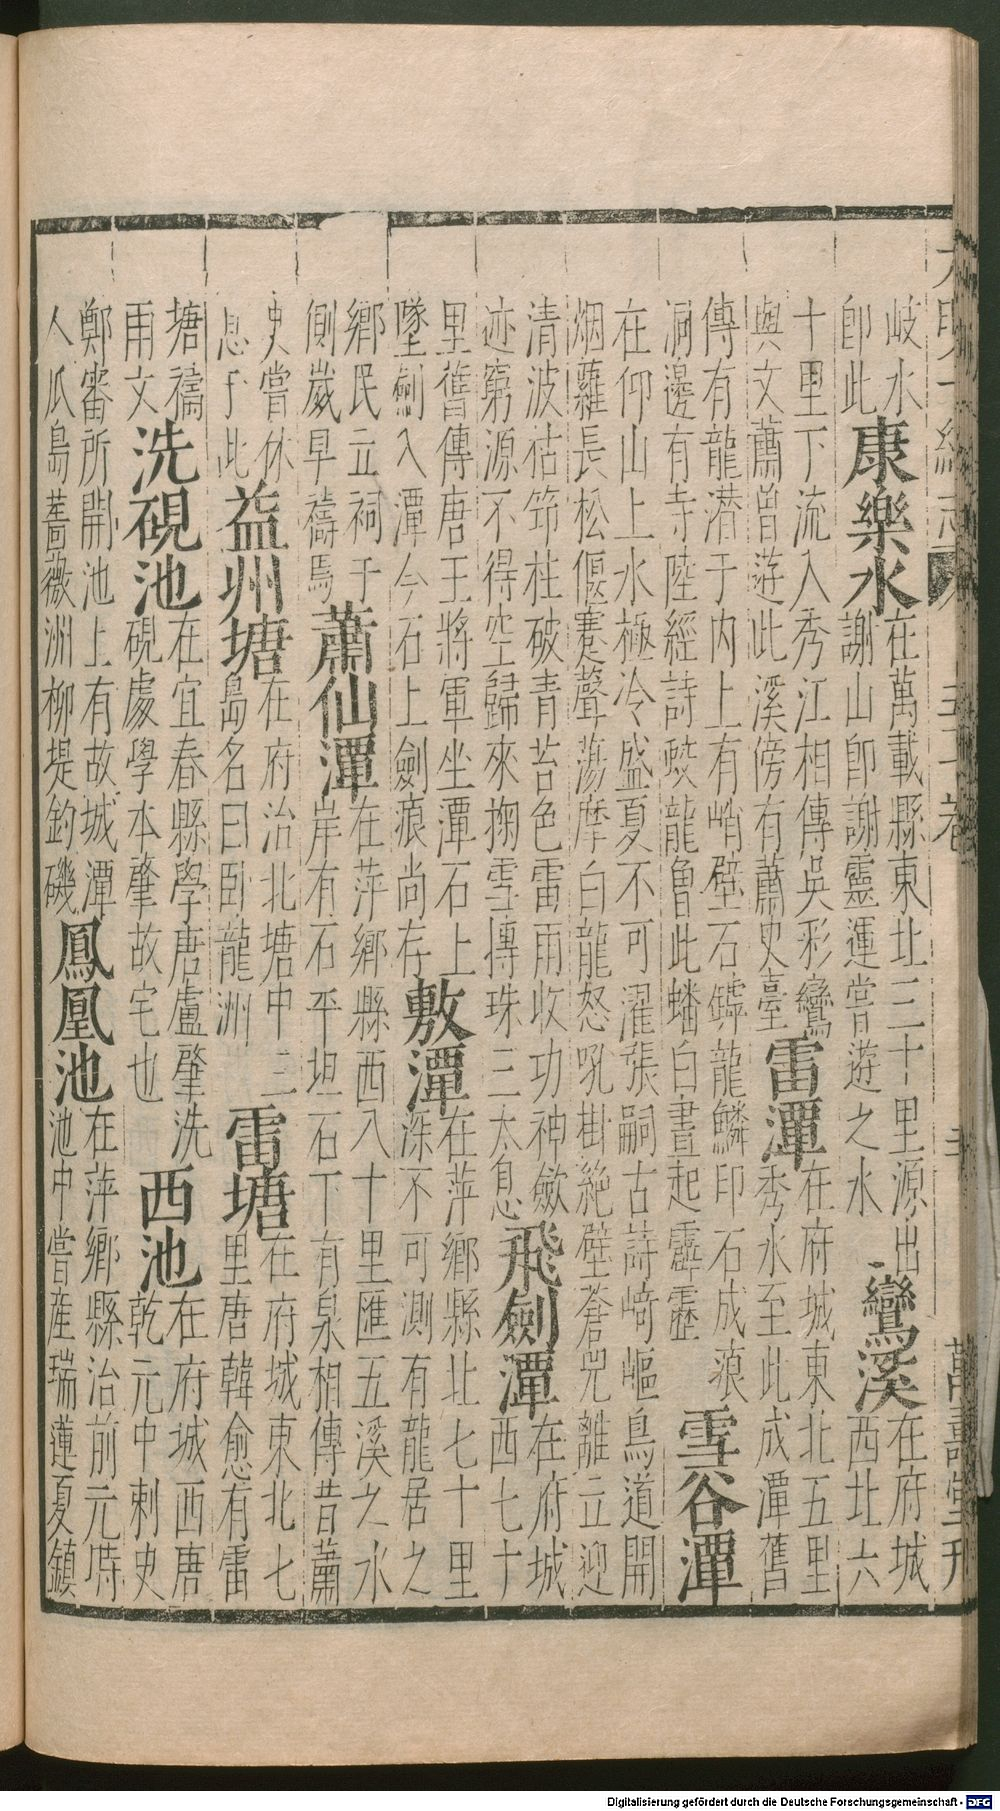 大明一統志 卷 萬壽堂刊
岐水
即此
康樂水
在萬載縣東北三十里源出
謝山即謝靈運嘗遊之水
鸞溪
在府城
西北六
十里下流入秀江相傳吳彩鸞
與文蕭曾遊此溪傍有蕭史臺
雷潭
在府城東北五里
秀水至此成潭舊
傳有龍潛于內上有峭壁石罅龍鱗印石成痕
洞邊有寺陸經詩蛟龍魯此蟠白晝起霹靂
雪谷潭
在仰山上水極冷盛夏不可濯張嗣古詩崎嶇鳥道開
烟蘿長松偃蹇聲蕩摩白龍怒吼掛絕壁蒼兕離立迎
清波枯筇拄破青苔色雷雨收功神斂
迹窮源不得空歸來掬雪傳珠三太息
飛劍潭
在府城
西七十
里舊傳唐王將軍坐潭石上
墜劍入潭今石上劍痕尚存
敷潭
在萍鄉縣北七十里
深不可測有龍居之
鄉民立祠于
側歲旱禱焉
蕭仙潭
在萍鄉縣西八十里匯五溪之水
岸有石平坦石下有泉相傳昔蕭
史嘗休
息于此
益州塘
在府治北塘中三
島名曰臥龍洲
雷塘
在府城東北七
里唐韓愈有雷
塘禱
雨文
洗硯池
在宜春縣學唐盧肇洗
硯處學本肇故宅也
西池
在府城西唐
乾元中刺史
鄭審所開池上有故城潭
人爪島薔薇洲柳堤釣磯
鳳凰池
在萍鄉縣治前元時
池中嘗產瑞蓮夏鎮
Digitalisierung gefördert durch die Deutsche Forschungsgemeinschaft - DFG